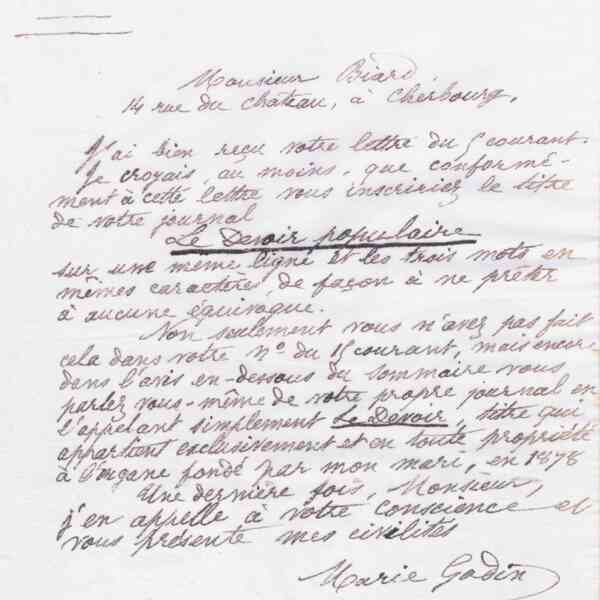 Monsieur Biard,
14 rue du château, à Cherbourg,
J'ai bien reçu votre lettre du 5 courant.
Je croyais, au moins, que conformé-
ment à cette lettre vous inscririez le titre
de votre journal
Le Devoir populaire
sur une même ligne et les trois mots en
mêmes caractères, de façon à ne prêter
à aucune équivoque.
Non seulement vous n'avez pas fait
cela dans votre No du 15 courant, mais encore
dans l'avis en-dessous du sommaire vous
parlez vous-même de votre propre journal en
l'appelant simplement Le Devoir, titre qui
appartient exclusivement et en toute propriété
à l'organe fondé par mon mari, en 1878
Une dernière fois, Monsieur,
j'en appelle à votre conscience et
vous présente mes civilités
Marie Godin